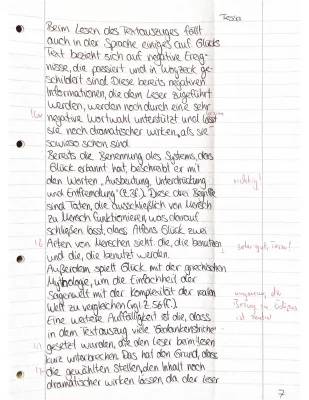 Tessa
Beim Lesen des Textauszuges fällt
auch in der Sprache einiges auf. Glücks
Text bezieht sich auf negative Ereig-
nisse, die passiert und in Woyzeck ge-
schildert sind. Diese bereits negativen
Informationen, die dem Leser zugeführt
werden, werden noch durch eine sehr
negative Wortwahl unterstützt und lässt
sie noch dramatischer wirken, als sie
sowieso schon sind.
Bereits die Benennung des Systems, das
Glück erkannt hat, beschreibt er mit
den Worten „Ausbeutung, Unterdrückung
und Entfremdung" (Z.3f.). Diese drei Begriffe
richtig!
sind Taten, die ausschließlich von Mensch
zu Mensch funktionieren, was darauf
schließen lässt, dass Alfons Glück zwei
Arten von Menschen sieht: die, die benutzen
sehr gut, Tessa!
und die, die benutzt werden.
Außerdem spielt Glück mit der griechischen
Mythologie, um die Einfachheit der
Sagenwelt mit der Komplexität der realen
Welt zu vergleichen (vgl. Z.56ff.).
Eine weitere Auffälligkeit ist die, dass
in dem Textauszug viele Gedankenstriche
gesetzt wurden, die den Leser beim Lesen
kurz unterbrechen. Das hat den Grund, dass
die gewählten Stellen den Inhalt noch
dramatischer wirken lassen, da der Leser
7